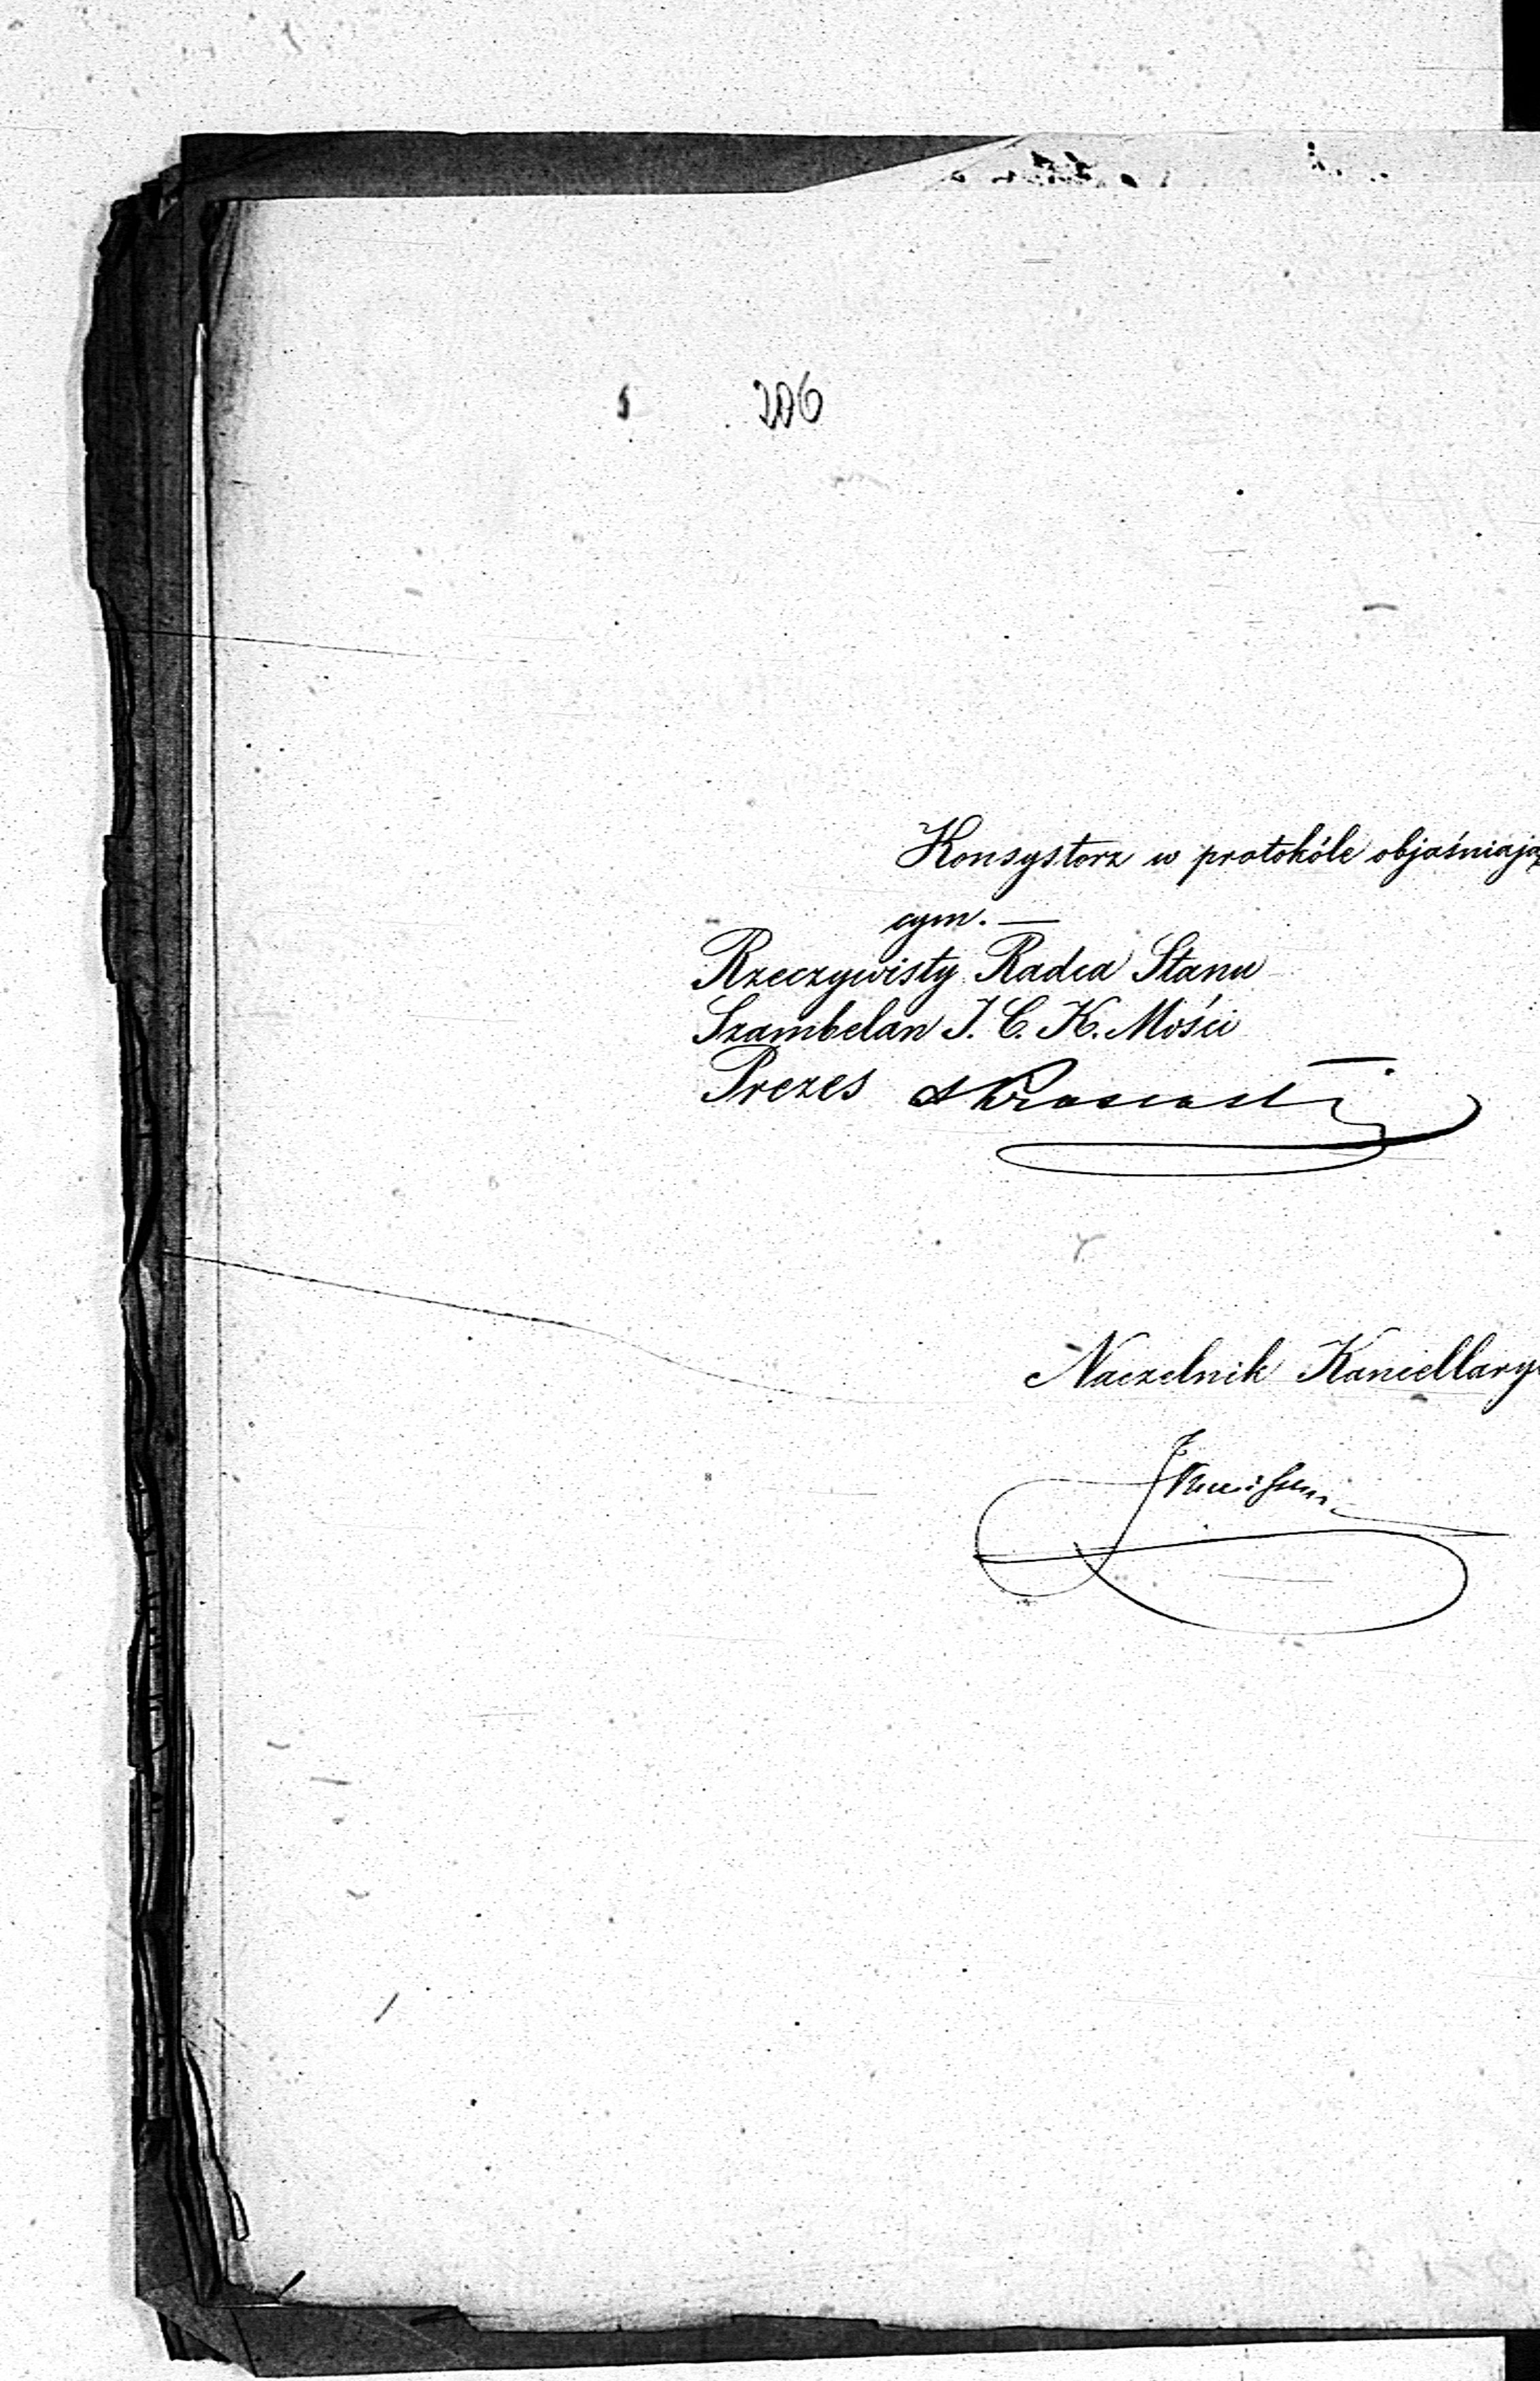 206
Konsystorz w protokóle objaśniają
cym. —
Rzeczywisty Radca Stanu
Szambelan J. C. K. Mości
Prezes
Naczelnik Kancellaryi